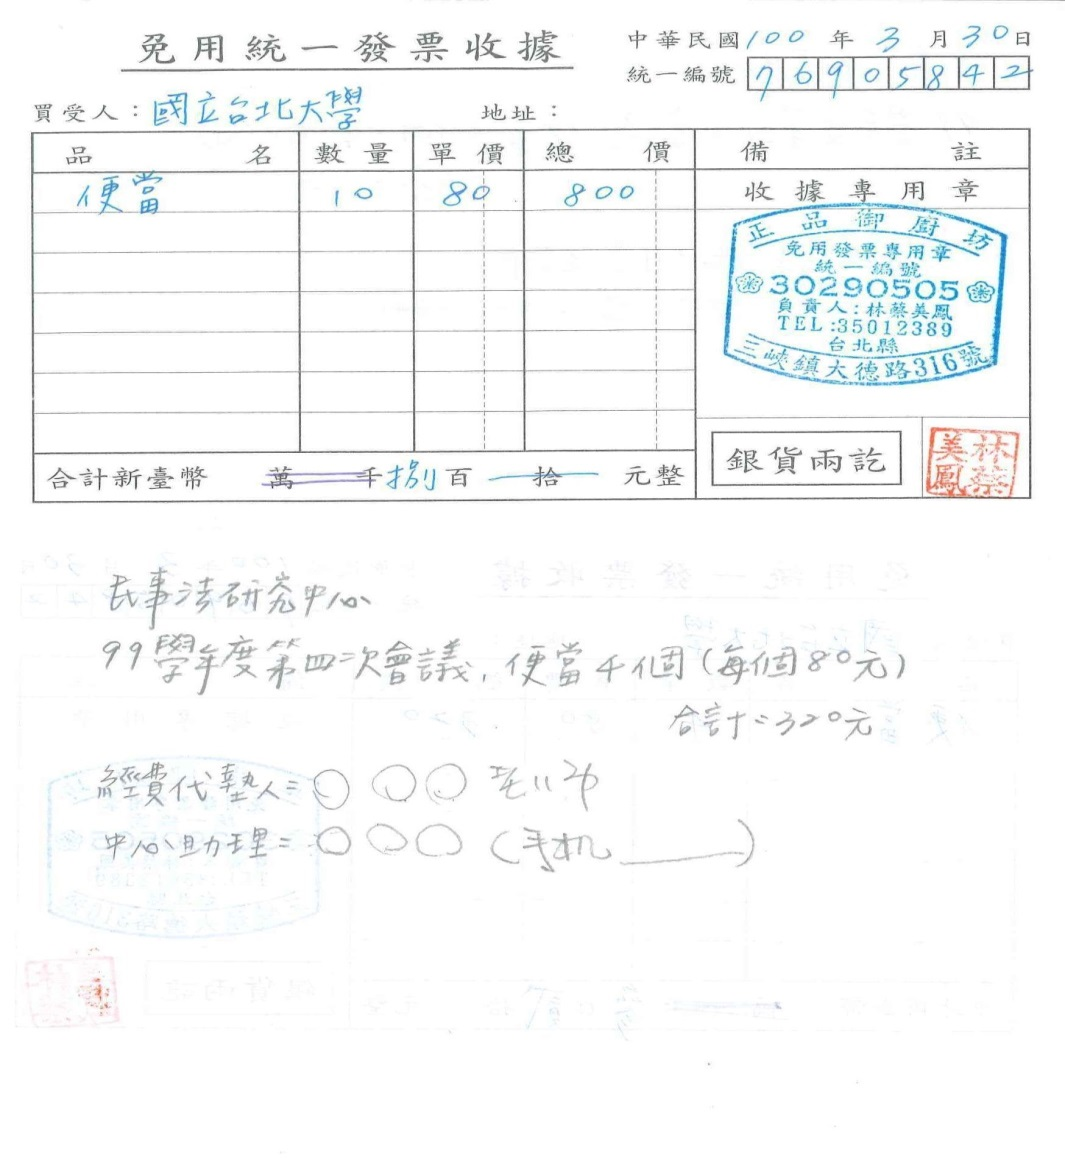 免用統一發票收據
中華民國100年3月30日
統一編號 76905842
買受人：國立台北大學 地址：
品名 數量 單價 總價 備註
便當 10 80 800
收據專用章
正品御廚坊
免用發票專用章
統一編號
30290505
負責人：林蔡美鳳
TEL:35012389
台北縣
三峽鎮大德路316號
合計新臺幣 萬 千 捌百 拾 元整
銀貨兩訖
林蔡美鳳
民事法研究中心
99學年度第四次會議，便當4個(每個80元)
合計=320元
經費代墊人=○○○
中心助理=○○○(手机______)